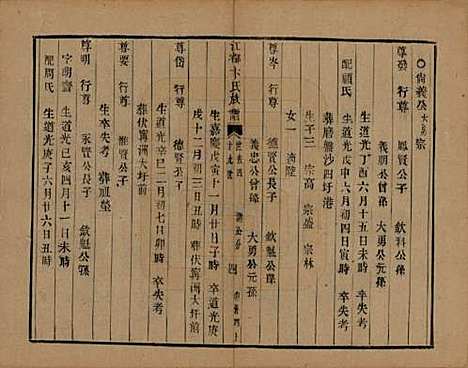 ○尚義公大房宗
尊發 行尊 鳳賢公子 欽科公孫
義朝公曾孫 大勇公元孫
生道光丁酉六月十五日未時 卒失考
配顧氏 生道光戊申六月初四日寅時 卒失考
葬盤沙四圩港
生子三 宗高 宗盛 宗林
女一 適陸
尊岑 行尊 德賢公長子 欽魁公孫
義忠公曾孫 大勇公元孫
江都卞氏族譜
十九世
生嘉慶戊寅十一月初十日 卒道光庚
戌十二月初三日丑時 葬伏寗洲大圩前
尊岱 行尊 德賢公次子
生道光辛巳二月初七日卯時 卒失考
葬伏寗洲大圩
尊要 行尊 永賢公長子
生卒失考 葬祖塋
尊明 行尊 永賢公次子 欽魁公孫
字朗齋 生道光己亥四月十一日未時
配周氏 生道光庚子六月廿六日丑時